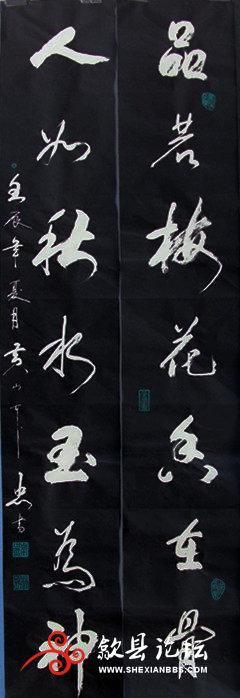 品若梅花香在骨
人如秋水玉為神
壬辰年夏月黄山
忠书
歙县论坛
WWW.SHEXIANBBS.COM